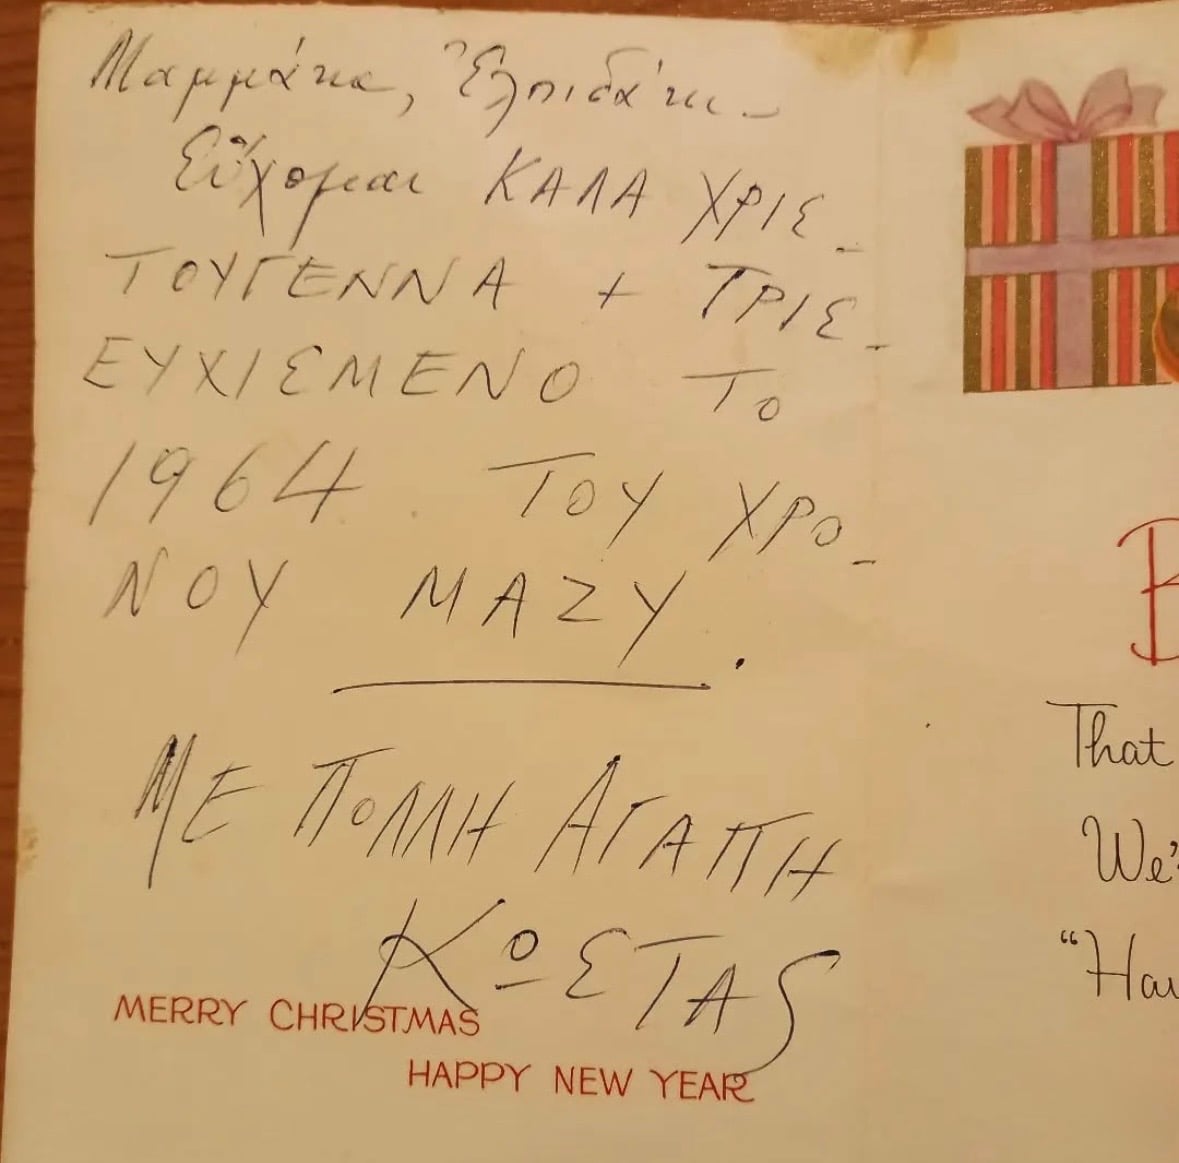 Μαμμάκα, Ἐλπιδάκι -
Εὔχομαι ΚΑΛΑ ΧΡΙΣ-
ΤΟΥΓΕΝΝΑ + ΤΡΙΣ-
ΕΥΧΙΣΜΕΝΟ ΤΟ
1964. ΤΟΥ ΧΡΟ-
ΝΟΥ ΜΑΖΥ.
ΜΕ ΠΟΛΛΗ ΑΓΑΠΗ
ΚΩΣΤΑS
MERRY CHRISTMAS
HAPPY NEW YEAR
B
That
We'
"Hav